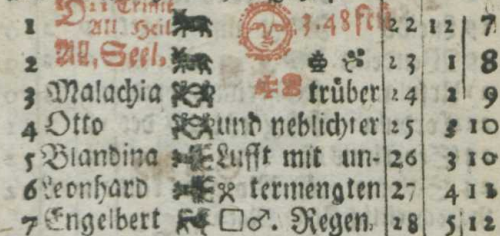 1 All. Heil 3.48 22 12 7
2 All. Seel. 23 1 8
3 Malachia trüber 24 2 9
4 Otto und neblichter 25 3 10
5 Blandina Lufft mit un- 26 3 10
6 Leonhard termengten 27 4 11
7 Engelbert □♂. Regen. 28 5 12